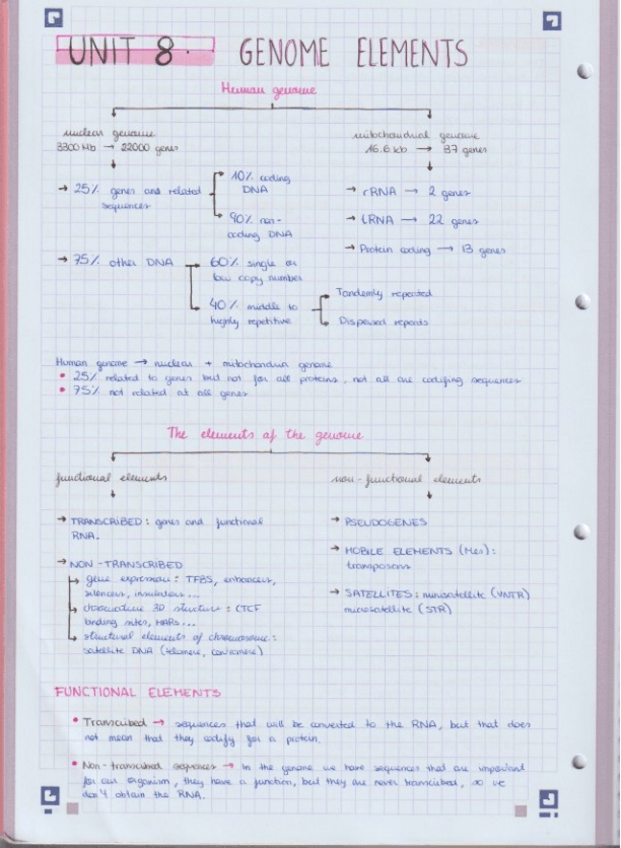 UNIT 8. GENOME ELEMENTS
Human genome
nuclear genome
3300 Mb → 22000 genes
mitochondrial genome
16.6 kb → 37 genes
→ 25% genes and related
sequences
10% coding
DNA
90% non-
coding DNA
→ rRNA → 2 genes
→ tRNA → 22 genes
→ Protein coding → 13 genes
→ 75% other DNA
60% single or
low copy number
40% middle to
highly repetitive
Tandemly repeated
Dispersed repeats
Human genome → nuclear + mitochondrion genome
• 25% related to genes but not for all proteins, not all are codifying sequences
• 75% not related at all genes
The elements of the genome
functional elements
→ TRANSCRIBED: genes and functional
RNA.
→ NON-TRANSCRIBED
gene expression: TFBS, enhancers,
silencers, insulators...
chromatine 3D structure: CTCF
binding sites, MARs...
structural elements of chromosome:
satellite DNA (telomere, centromere)
non-functional elements
→ PSEUDOGENES
→ MOBILE ELEMENTS (MEs):
transposons
→ SATELLITES: minisatellite (VNTR)
microsatellite (STR)
FUNCTIONAL ELEMENTS
• Transcribed → sequences that will be converted to the RNA, but that does
not mean that they codify for a protein.
• Non-transcribed sequences → In the genome we have sequences that are important
for our organism, they have a function, but they are never transcribed, so we
don't obtain the RNA.